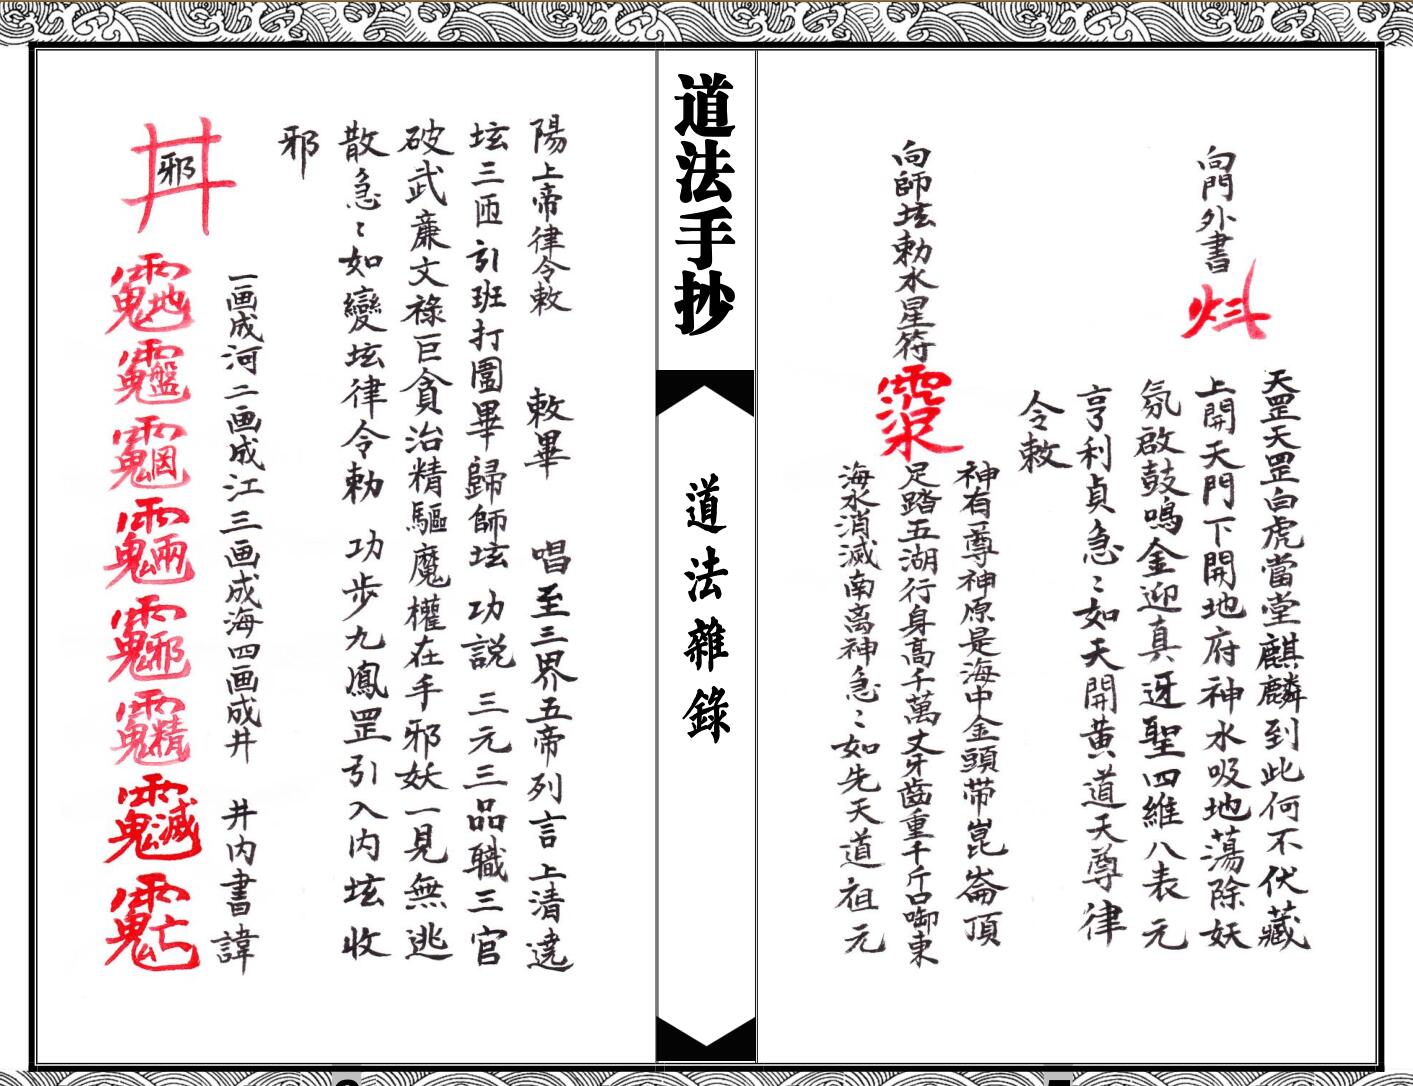 向門外書
天罡天罡白虎當堂麒麟到此何不伏藏
上開天門下開地府神水吸地蕩除妖
氛啟鼓鳴金迎真迓聖四維八表元
亨利貞急〻如天開黃道天尊律
令敕
向師坛勅水星符
神有尊神原是海中金頭带崑崙頂
足踏五湖行身高千萬丈牙齒重千斤口啣東
海水消滅南离神急〻如先天道祖元
道法手抄
道法雜錄
陽上帝律令敕 敕畢 唱至三界五帝列言上清遶
坛三匝引班打圍畢歸師坛 功説 三元三品職三官
破武廉文祿巨貪治精驅魔權在手邪妖一見無逃
散急〻如變坛律令勅 功步九鳳罡引入内坛收
邪
一画成河二画成江三画成海四画成井 井内書諱
井
邪